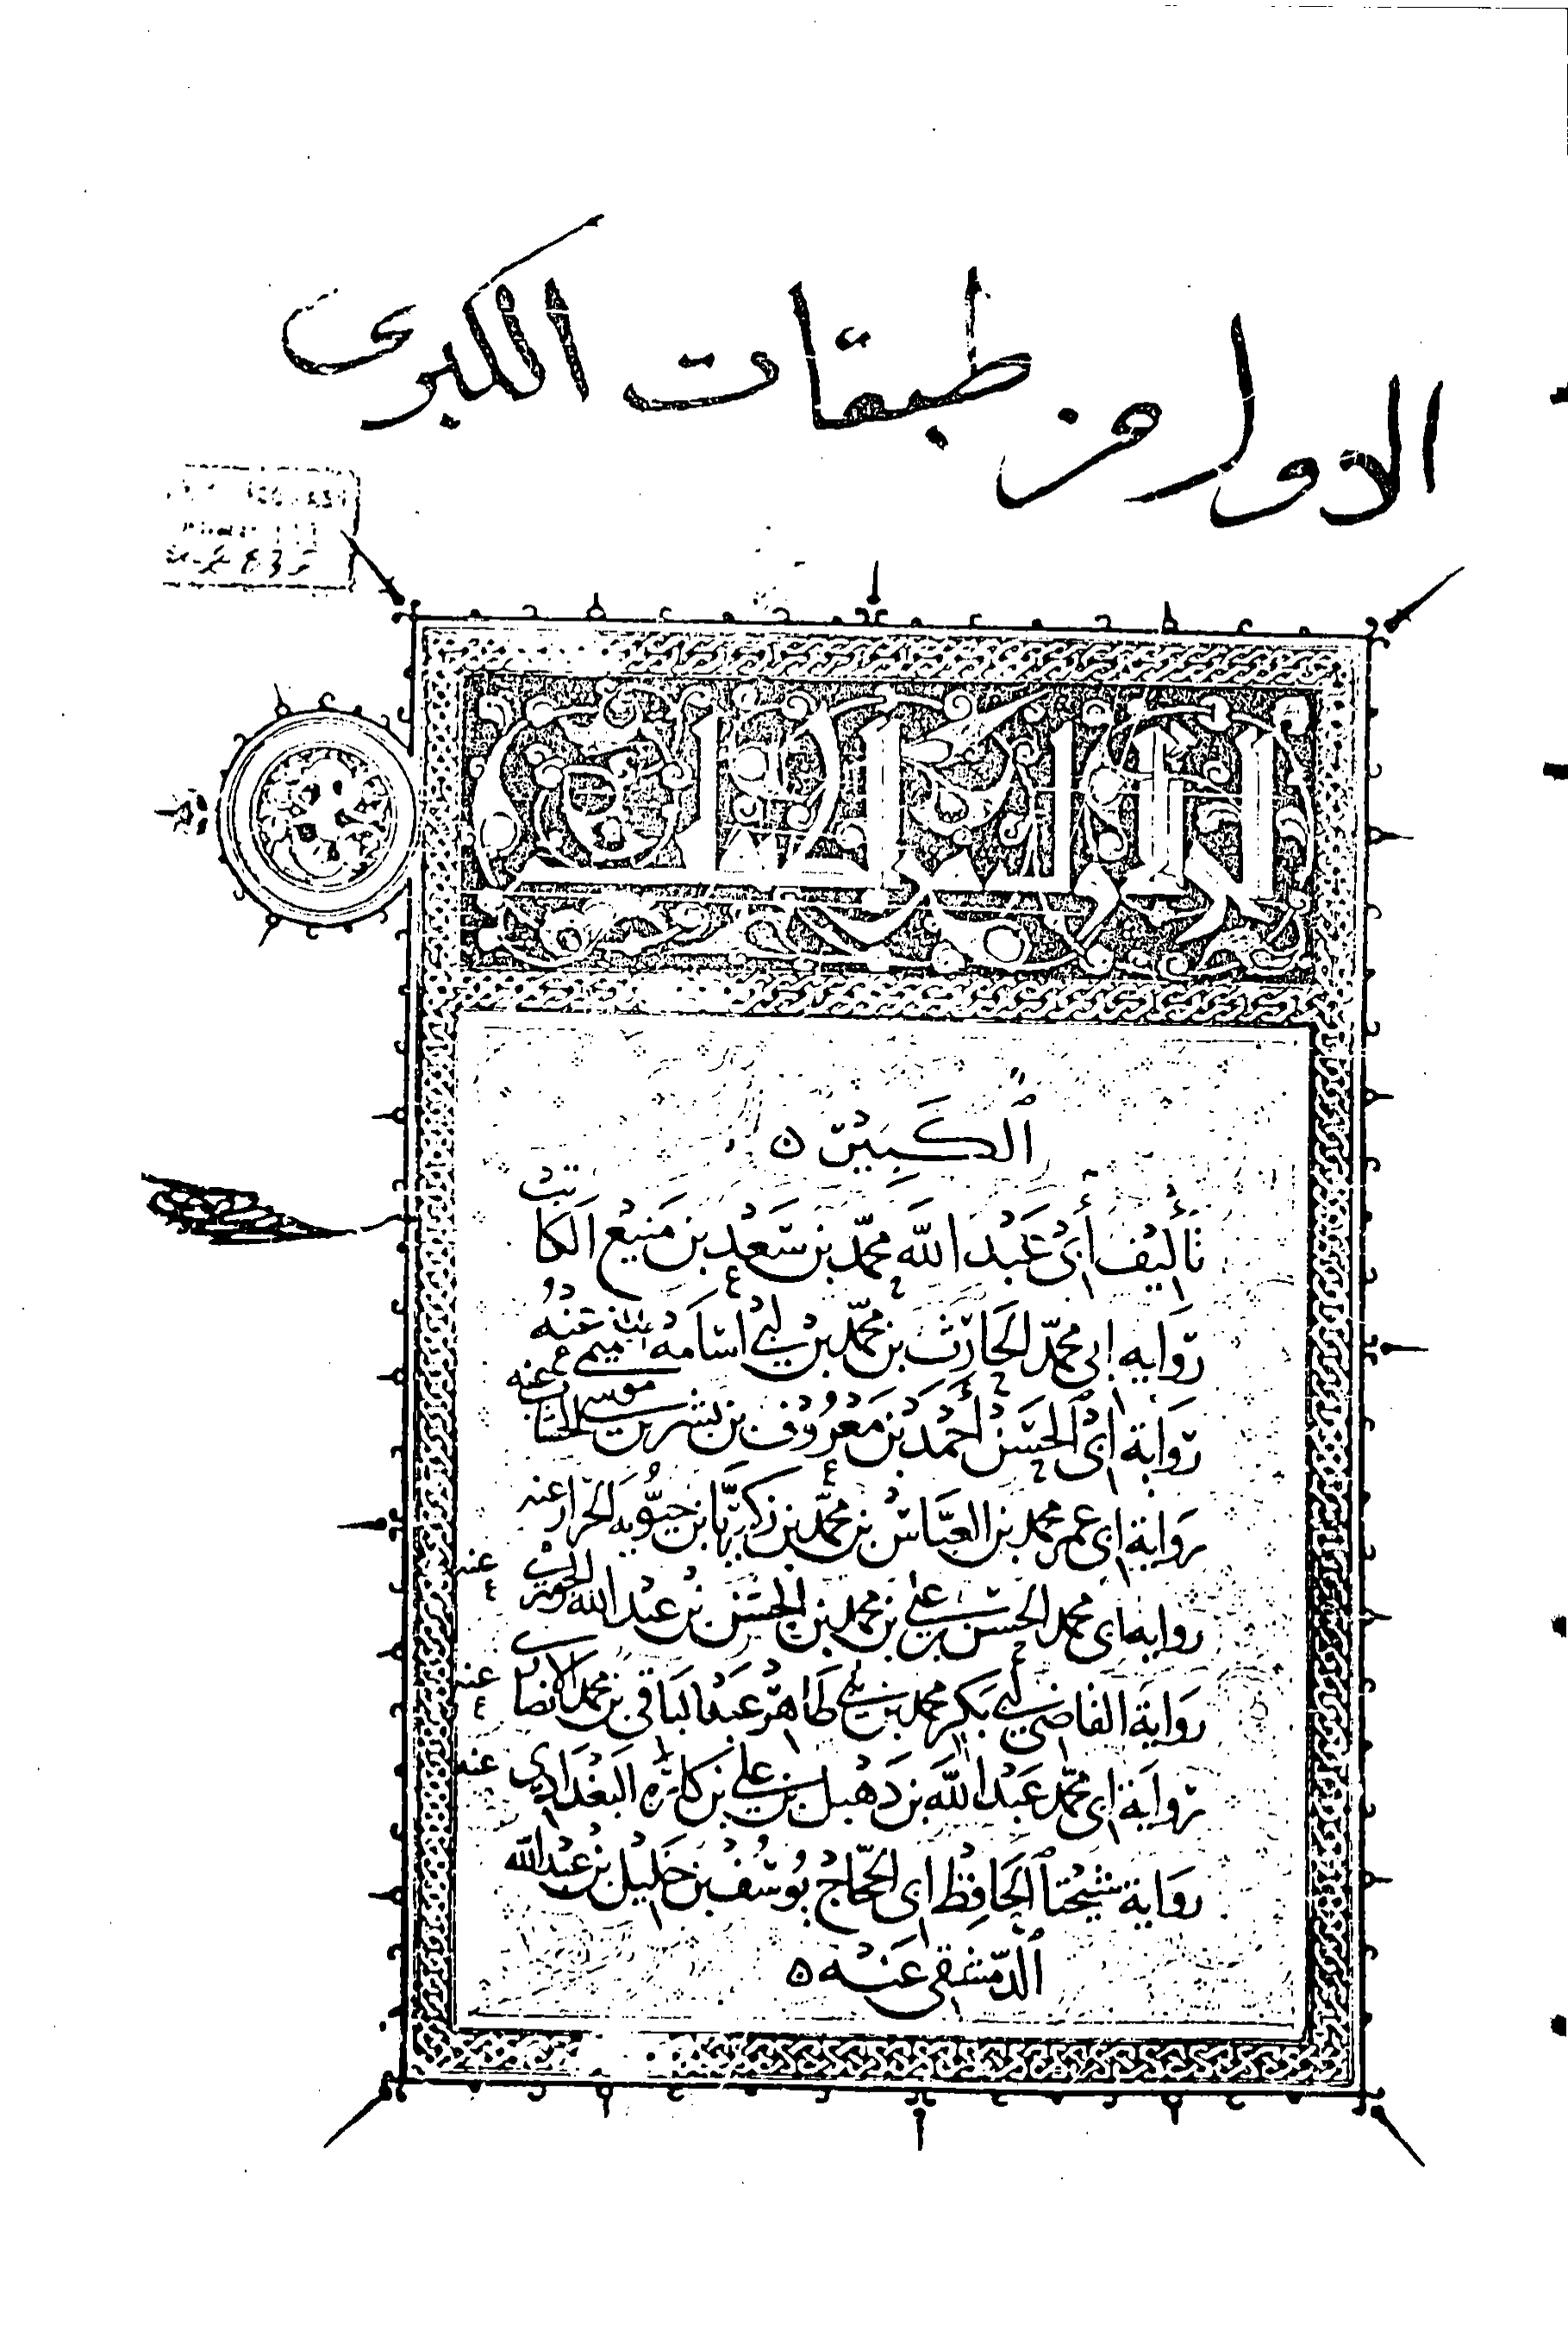 الاول من طبقات الكبرى
835
الاول من الطبقات
الكَبِيْر ه
تأليف أبي عَبْد الله محمّد بن سَعْد بن مَنيْع الكاتب
رِوَايه ابي محمّد الحَارِث بن محمّد بن أبي أسَامَه التميمي عنْه
رِوَاية ابي الحَسَن أحمد بن مَعْرُوف بن بشر بن موسى الخشاب عنه
روَاية ابي عمر محمد بن العبَّاس بن محمّد بن زكريَّا بن حيُّويَه الخزاز عنه
روايه ابي محمد الحسن بن علي بن محمد بن الحسَن بن عبْد الله الجوهري عنه
روَاية القاضي أبي بَكر محمد بن أبي طَاهر عَبد البَاقي بن محمد الانصاري عنه
رِوايَة ابي محمّد عَبْد الله بن دَهْبل بن علي بن كاره البَغْدَادي عنه
روَاية شيخنا الحَافِظ ابي الحجّاج يُوسُف بن خليْل بن عبْد الله
الدّمشقي عَنْه ه